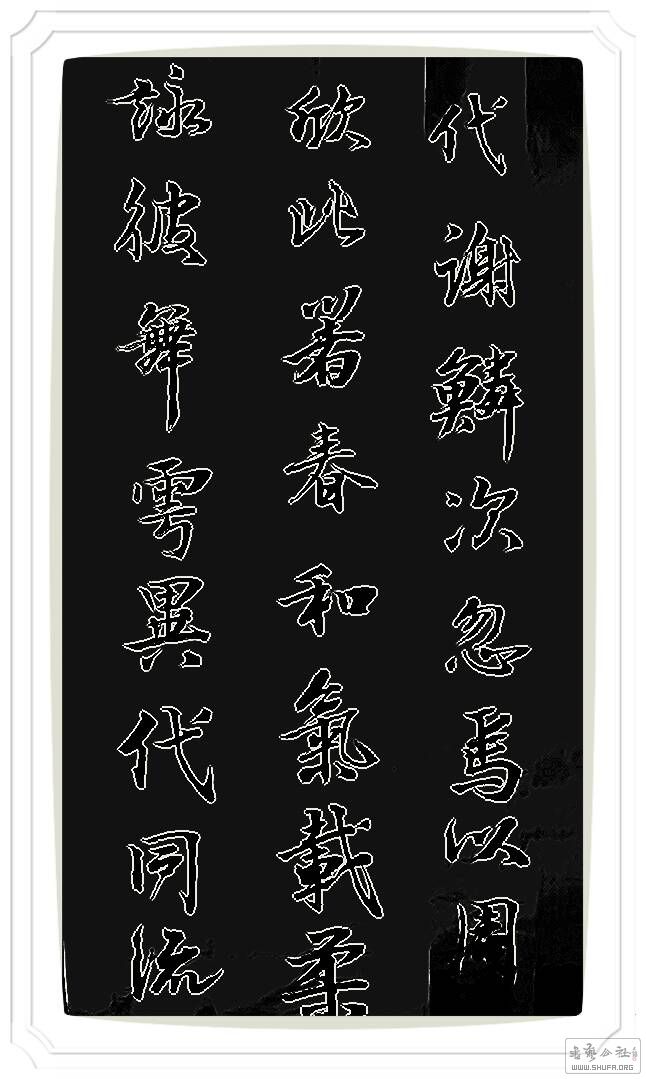 代謝鱗次忽焉以周
欣此暮春和氣載柔
詠彼舞雩異代同流
書藝公社
WWW.SHUFA.ORG